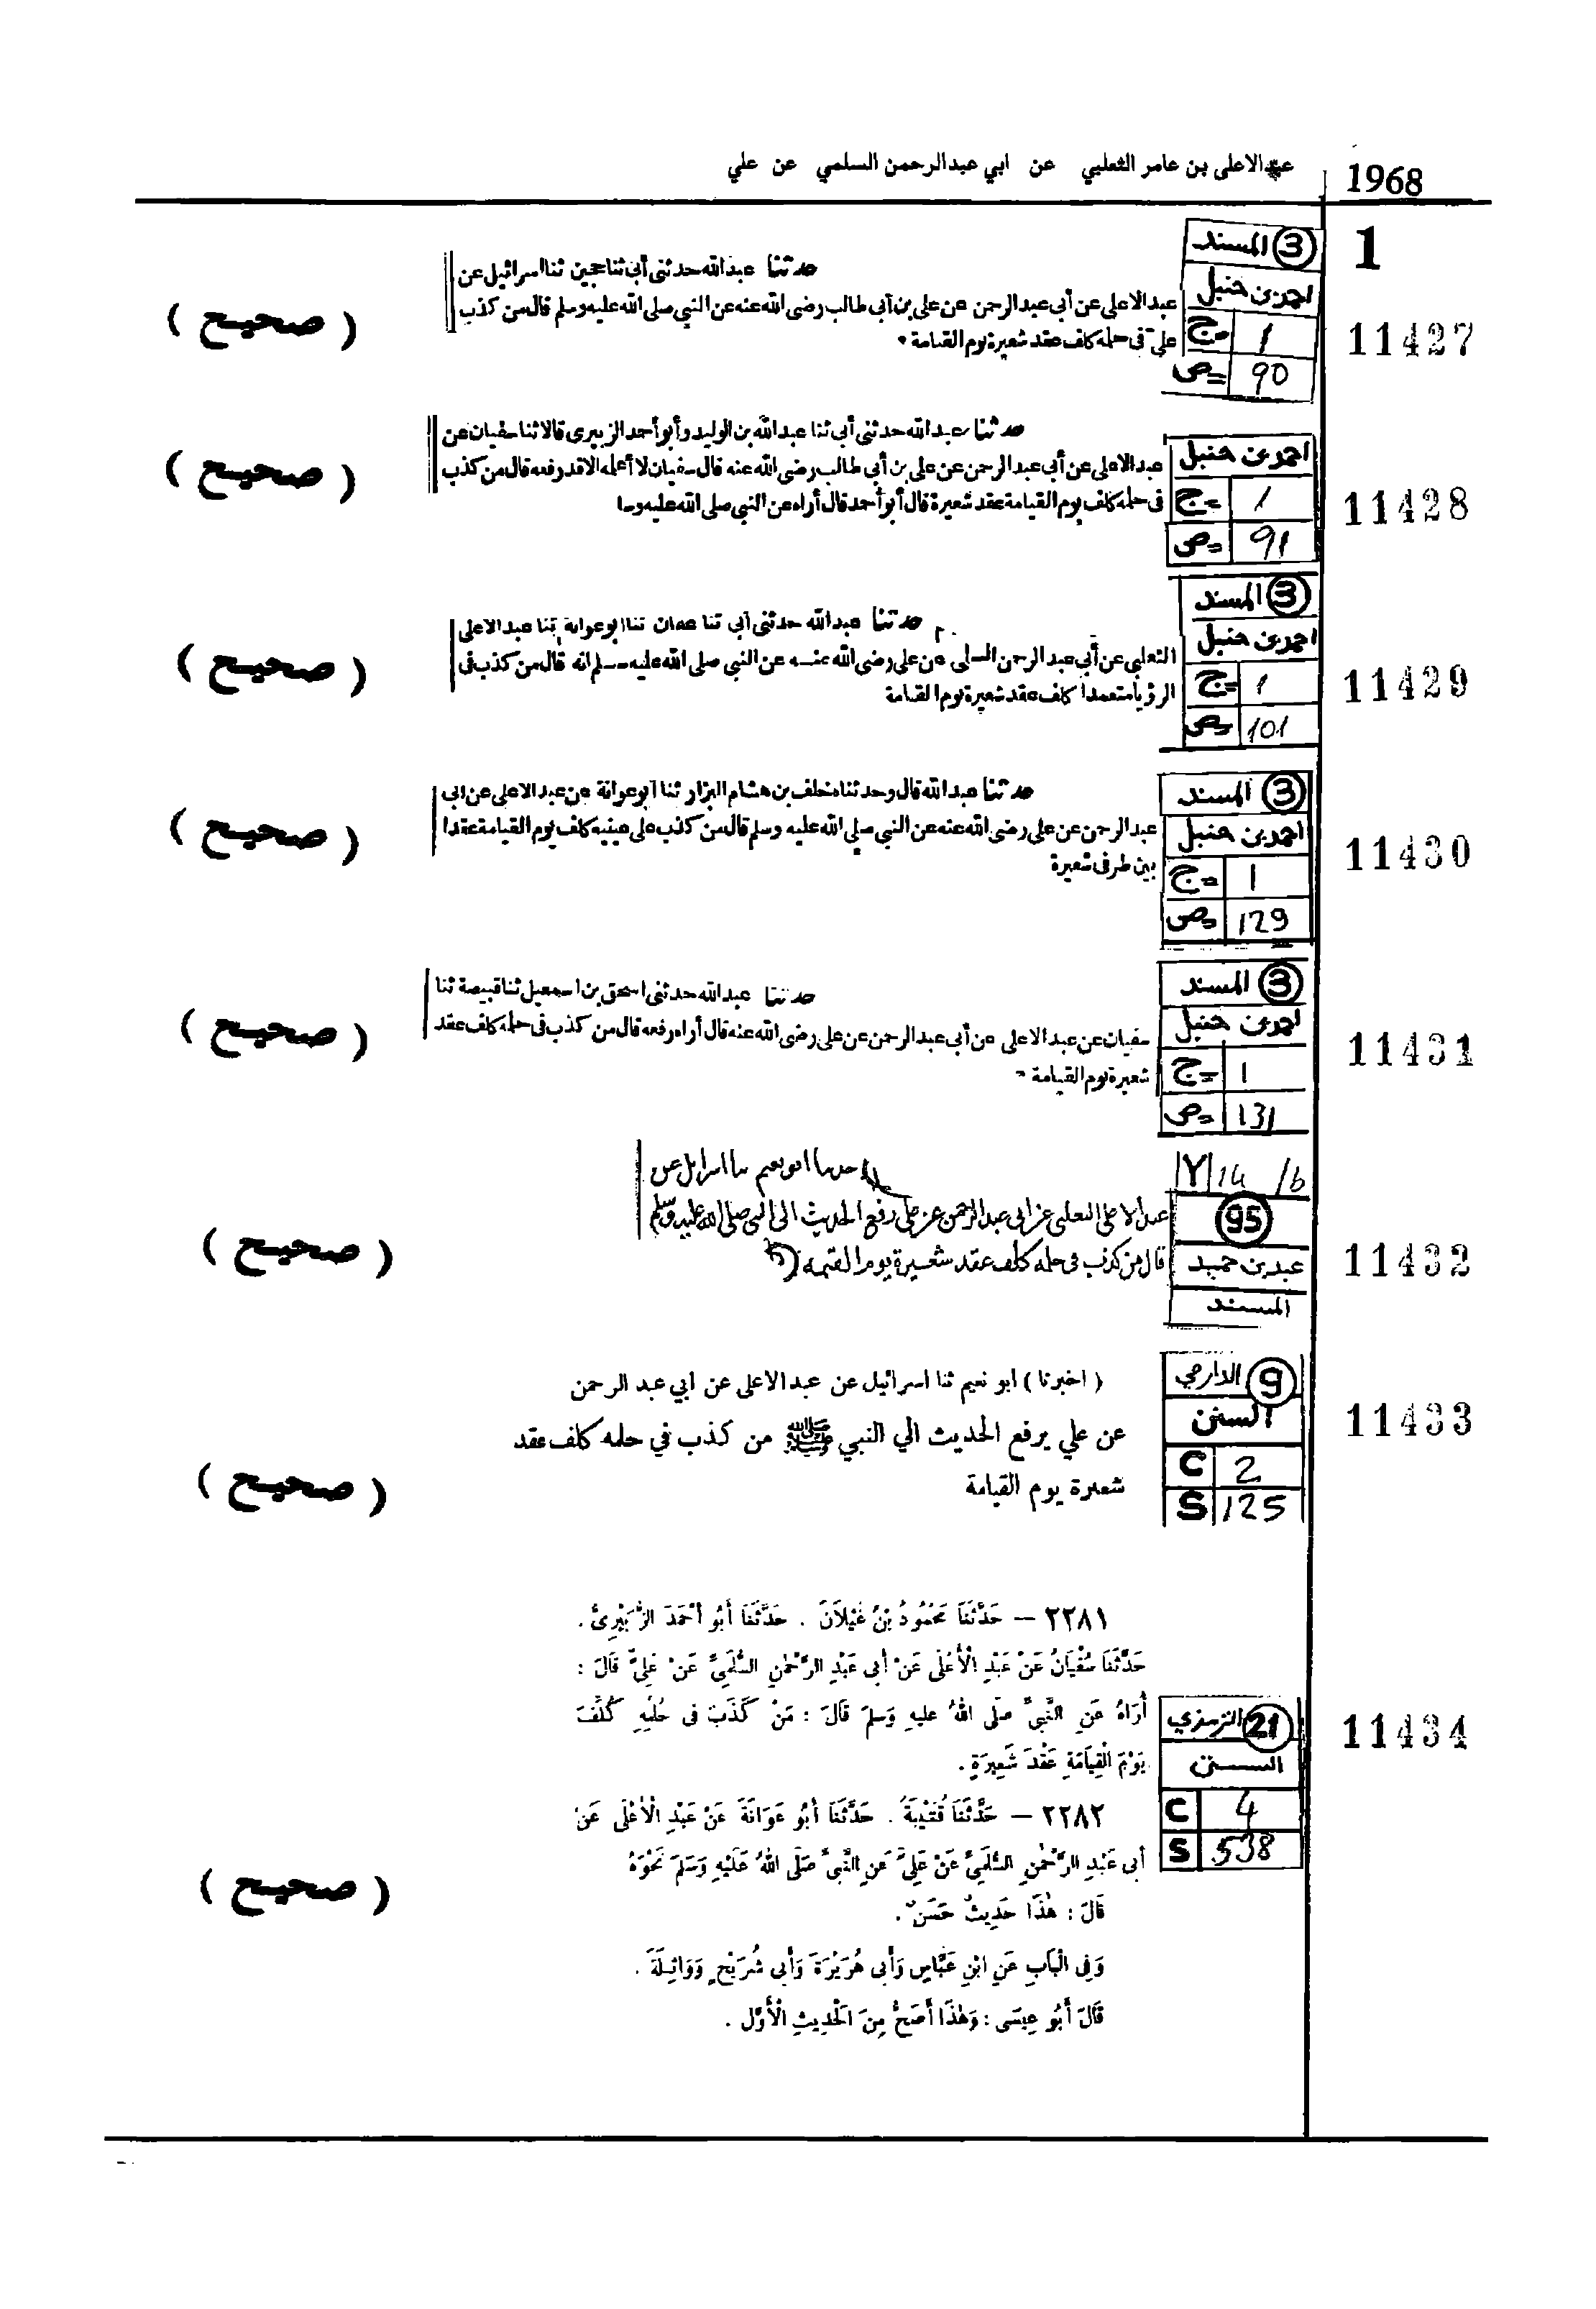 1968
عبدالاعلى بن عامر الثعلبي عن ابي عبدالرحمن السلمي عن علي
1
11427
3 المسند
احمد بن حنبل
ج= 1
ص= 90
حدثنا عبدالله حدثنى أبى ثنا حجين ثنا اسرائيل عن
عبدالاعلى عن أبى عبدالرحمن عن على بن أبى طالب رضى الله عنه عن النبى صلى الله عليه وسلم قال من كذب
على فى حلمه كلف عقد شعيرة يوم القيامة
( صحيح )
11428
احمد بن حنبل
ج= 1
ص= 91
حدثنا عبدالله حدثنى أبى ثنا عبدالله بن الوليد وأبو أحمد الزبيرى قالا ثنا سفيان عن
عبدالاعلى عن أبى عبدالرحمن عن على بن أبى طالب رضى الله عنه قال سفيان لا أعلمه الا قد رفعه قال من كذب
فى حلمه كلف يوم القيامة عقد شعيرة قال أبو أحمد قال أراه عن النبى صلى الله عليه وسا
( صحيح )
11429
3 المسند
احمد بن حنبل
ج= 1
ص= 101
حدثنا عبدالله حدثنى أبى ثنا عفان ثنا ابو عوانة ثنا عبدالاعلى
الثعلبى عن أبى عبدالرحمن السلمى عن على رضى الله عنه عن النبى صلى الله عليه وسلم انه قال من كذب فى
الرؤيا متعمدا كلف عقد شعيرة يوم القيامة
( صحيح )
11430
3 المسند
احمد بن حنبل
ج= 1
ص= 129
حدثنا عبدالله قال وحدثناه خلف بن هشام البزار ثنا أبو عوانة عن عبدالاعلى عن ابى
عبدالرحمن عن على رضى الله عنه عن النبى صلى الله عليه وسلم قال من كذب على عينيه كلف يوم القيامة عقدا
بين طرفى شعيرة
( صحيح )
11431
3 المسند
احمد بن حنبل
ج= 1
ص= 131
حدثنا عبدالله حدثنى اسحق بن اسمعيل ثنا قبيصة ثنا
سفيان عن عبدالاعلى عن أبى عبدالرحمن عن على رضى الله عنه قال أراه رفعه قال من كذب فى حلمه كلف عقد
شعيرة يوم القيامة
( صحيح )
11432
14 /b
95
عبد بن حميد
المسند
حدثنا ابو نعيم ثنا اسرايل عن
عبد الاعلى الثعلبى عن ابى عبد الرحمن عن على رفع الحديث الى النبى صلى الله عليه وسلم
قال من كذب فى حلمه كلف عقد شعيرة يوم القيمة
( صحيح )
11433
9 الدارمي
السنن
C 2
S 125
( اخبرنا ) ابو نعيم ثنا اسرائيل عن عبدالاعلى عن ابي عبد الرحمن
عن علي يرفع الحديث الي النبي ﷺ من كذب في حلمه كلف عقد
شعيرة يوم القيامة
( صحيح )
11434
21 الترمذي
السنن
C 4
S 538
٢٢٨١ — حَدَّثَنَا مَحْمُودُ بْنُ غَيْلَانَ . حَدَّثَنَا أَبُو أَحْمَدَ الزُّبَيْرِىُّ .
حَدَّثَنَا سُفْيَانُ عَنْ عَبْدِ الْأَعْلَى عَنْ أَبِى عَبْدِ الرَّحْمٰنِ السُّلَمِىِّ عَنْ عَلِىٍّ قَالَ :
أُرَاهُ عَنِ النَّبِىِّ صَلَّى اللهُ عليهِ وَسَلَمَ قَالَ : مَنْ كَذَبَ فى حُلْمِهِ كُلِّفَ
يَوْمَ الْقِيَامَةِ عَقْدَ شَعِيرَةٍ .
٢٢٨٢ — حَدَّثَنَا قُتَيْبَةُ . حَدَّثَنَا أَبُو عَوَانَةَ عَنْ عَبْدِ الْأَعْلَى عَنْ
أَبِى عَبْدِ الرَّحْمٰنِ السُّلَمِىِّ عَنْ عَلِىٍّ عَنِ النَّبِىِّ صَلَّى اللهُ عَلَيْهِ وَسَلَمَ نَحْوَهُ
قَالَ : هٰذَا حَدِيثٌ حَسَنٌ .
وَفِى الْبَابِ عَنِ ابْنِ عَبَّاسٍ وَأَبِى هُرَيْرَةَ وَأَبِى شُرَيْحٍ وَوَاثِلَةَ .
قَالَ أَبُو عِيسَى : وَهٰذَا أَصَحُّ مِنَ الْحَدِيثِ الْأَوَّلِ .
( صحيح )